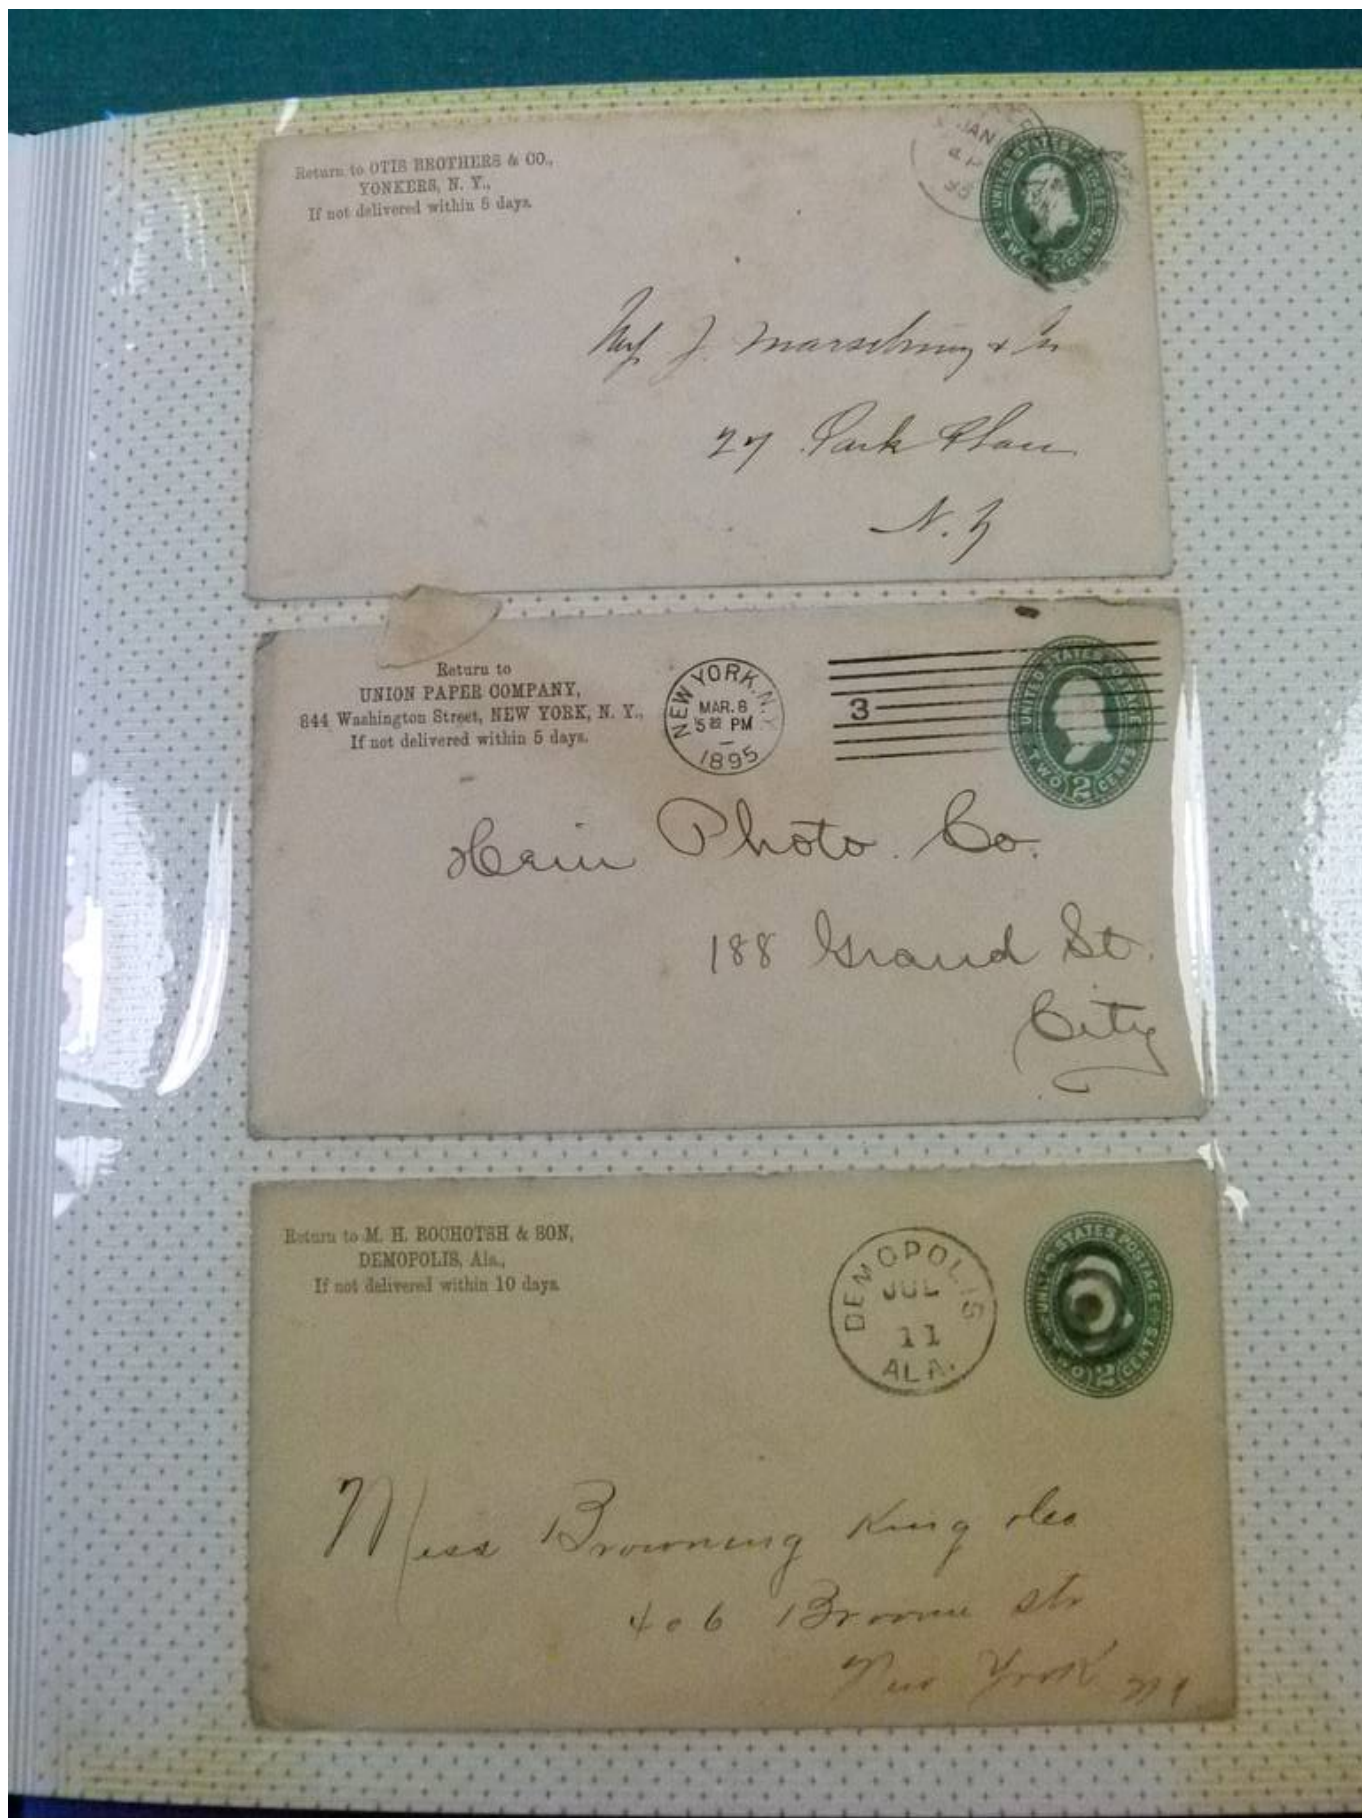 Return to OTIS BROTHERS & CO.,
YONKERS, N. Y.,
If not delivered within 5 days.
JAN
95
UNITED STATES POSTAGE
TWO CENTS
J.
27 Park Place
N. Y
Return to
UNION PAPER COMPANY,
844 Washington Street, NEW YORK, N. Y.,
If not delivered within 5 days.
NEW YORK, N.Y.
MAR. 8
5 PM
1895
3
UNITED STATES POSTAGE
TWO 2 CENTS
Photo. Co.
188 Grand St.
City
Return to M. H. ROCHOTSH & SON,
DEMOPOLIS, Ala.,
If not delivered within 10 days.
DEMOPOLIS
JUL
11
ALA.
UNITED STATES POSTAGE
TWO 2 CENTS
Mess Browning King &co
406 Broome str
New York NY